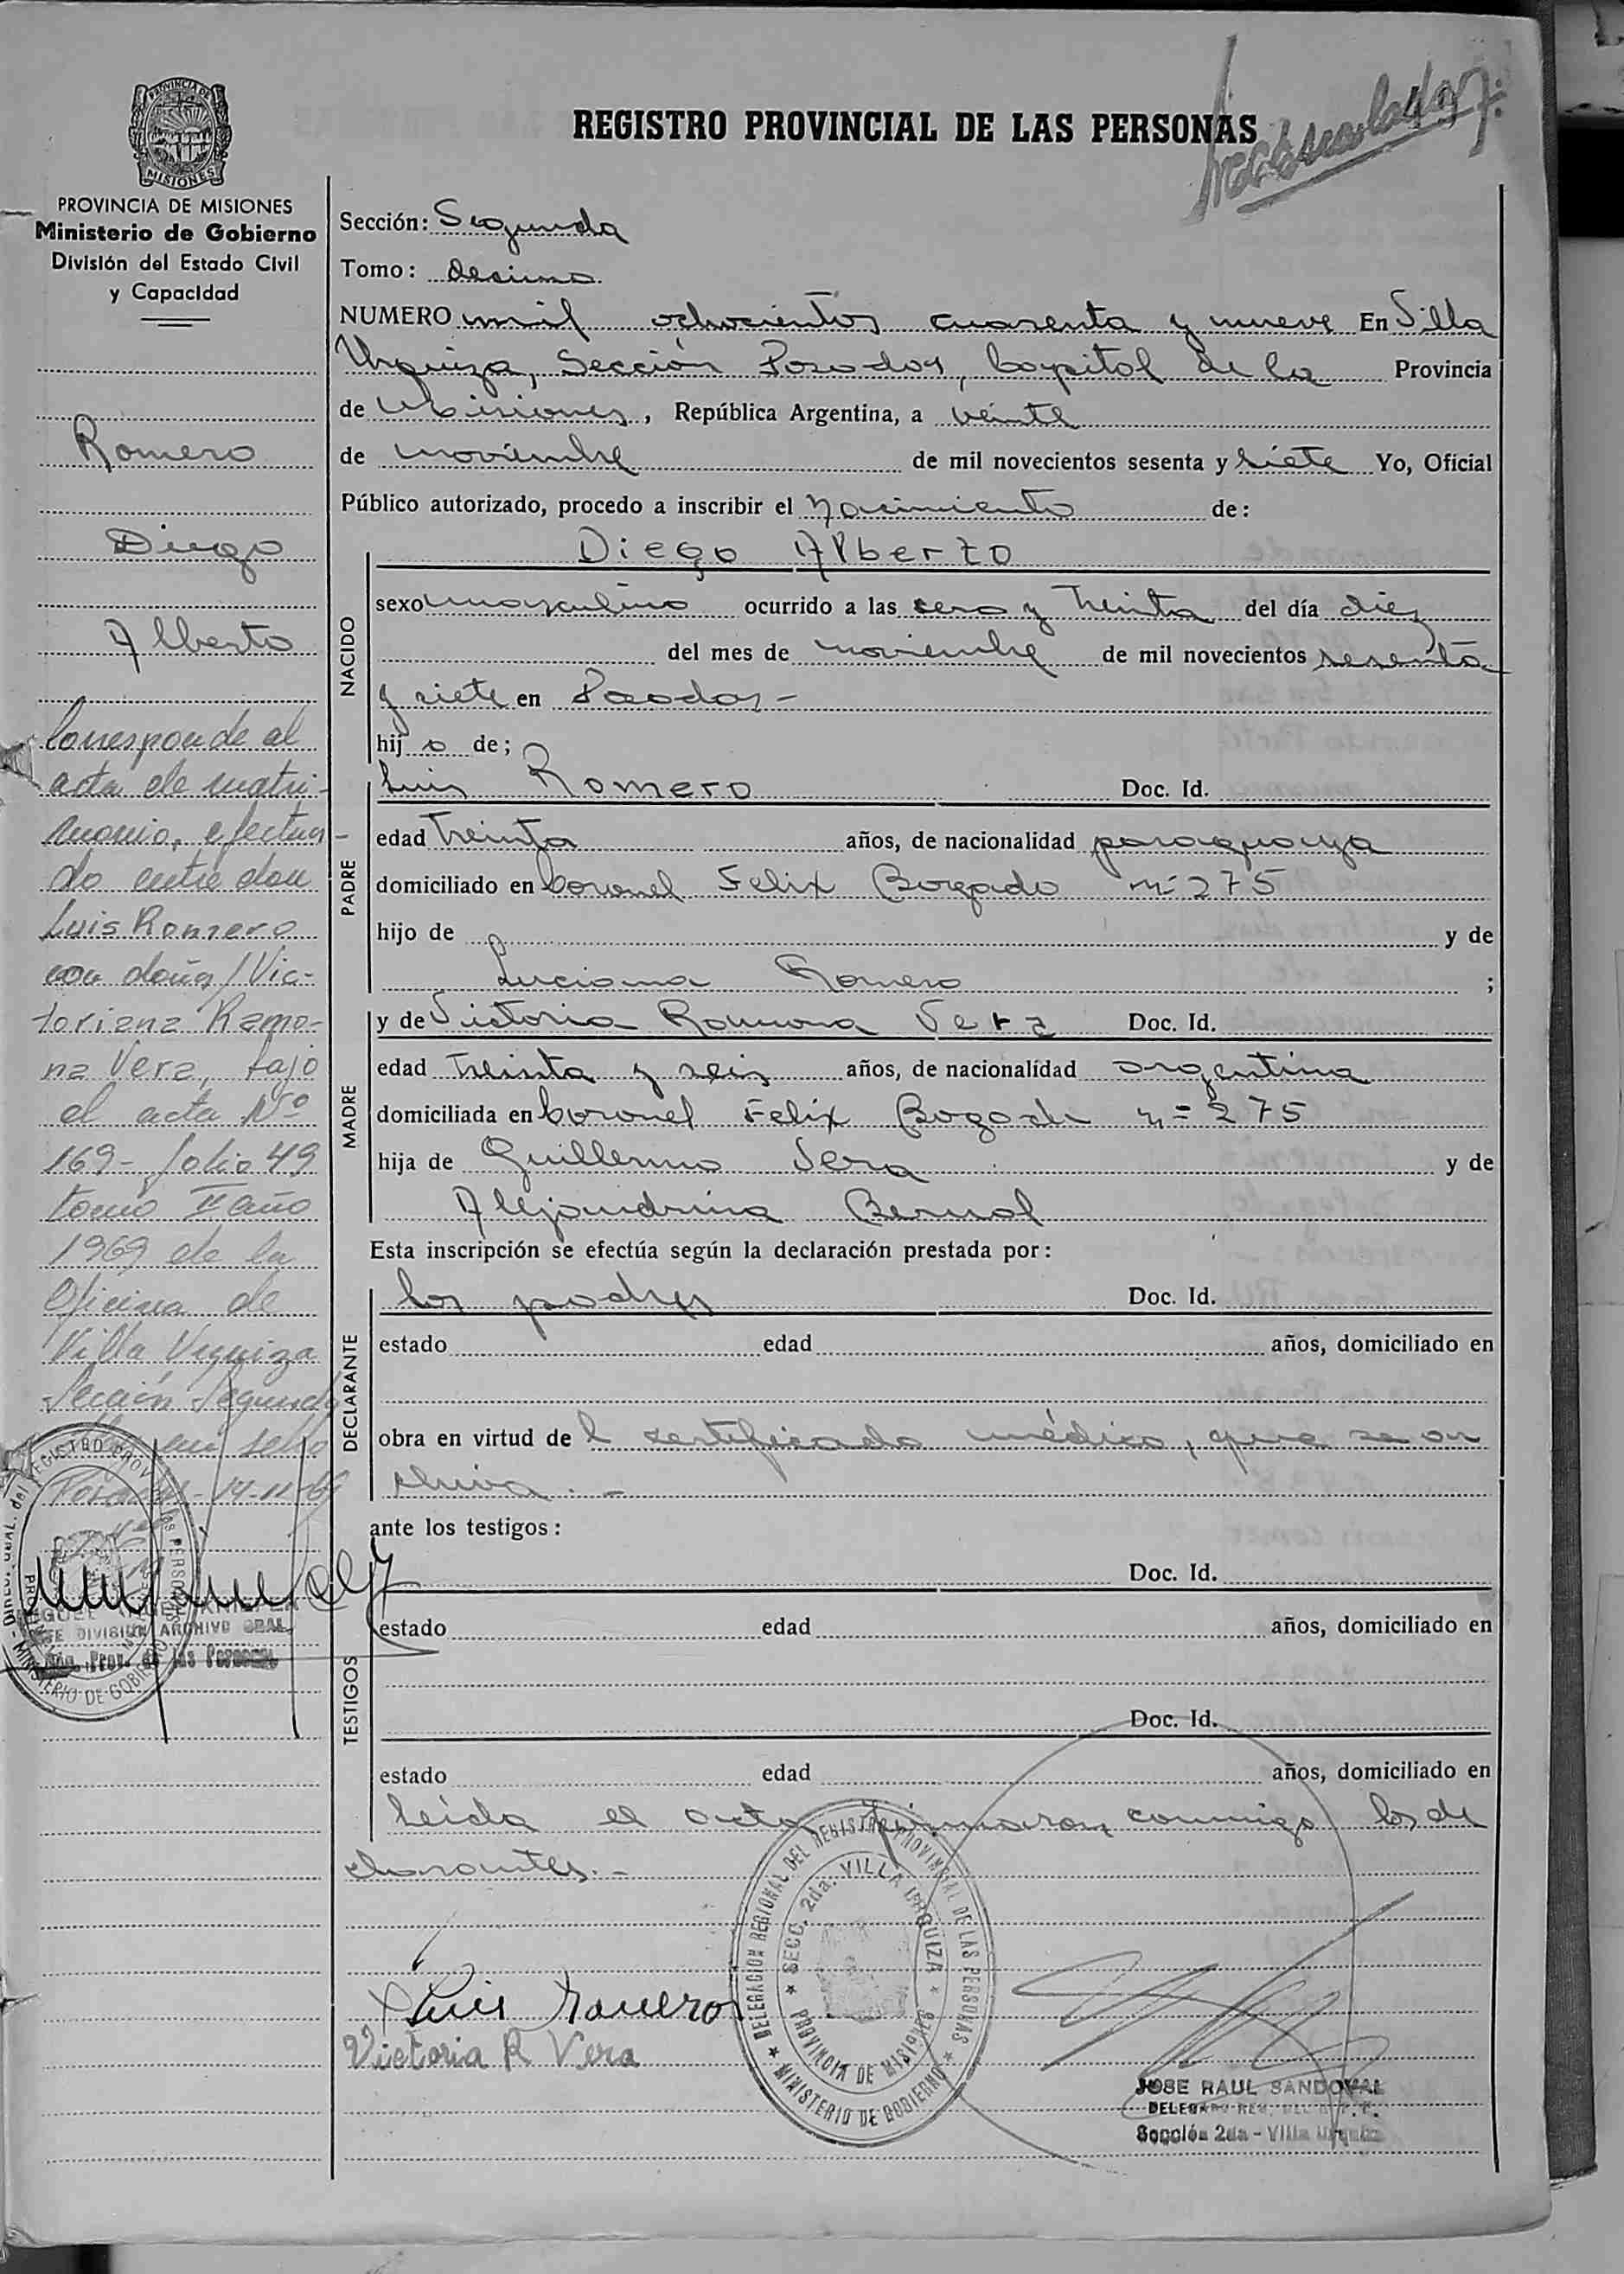 REGISTRO PROVINCIAL DE LAS PERSONAS
PROVINCIA DE
MISIONES
PROVINCIA DE MISIONES
Ministerio de Gobierno
División del Estado Civil
y Capacidad
Romero
Diego
Alberto
Corresponde al
acta de matri-
monio, efectua-
do entre don
Luis Romero
con doña Vic-
toriana Ramo-
na Vera, bajo
el acta Nº
169- folio 49
tomo II año
1969 de la
Oficina de
Villa Urquiza
Sección Segunda
sello
Posadas - 14-11-69
JEFE DIVISION ARCHIVO GRAL.
Prov. de las Personas
Sección: Segunda
Tomo: Decimo
NUMERO mil ochocientos cuarenta y nueve En Villa
Urquiza, Sección Posadas, Capital de la Provincia
de Misiones, República Argentina, a veinte
de noviembre de mil novecientos sesenta y siete Yo, Oficial
Público autorizado, procedo a inscribir el Nacimiento de:
NACIDO
Diego Alberto
sexo masculino ocurrido a las cero y treinta del día diez
del mes de noviembre de mil novecientos sesenta
y siete en Posadas -
hijo de;
PADRE
Luis Romero Doc. Id.
edad treinta años, de nacionalidad paraguaya
domiciliado en Coronel Felix Bogado nº 275
hijo de y de
Luciana Romero ;
MADRE
y de Victoria Ramona Vera Doc. Id.
edad treinta y seis años, de nacionalidad argentina
domiciliada en Coronel Felix Bogado nº 275
hija de Guillermo Vera y de
Alejandrina Bernal
Esta inscripción se efectúa según la declaración prestada por:
DECLARANTE
los padres Doc. Id.
estado edad años, domiciliado en
obra en virtud de l certificado médico, que se ar
chiva. -
ante los testigos:
TESTIGOS
Doc. Id.
estado edad años, domiciliado en
Doc. Id.
estado edad años, domiciliado en
Leida el acta firmaron conmigo los de
clarantes. -
Luis Romero
Victoria R Vera
DELEGACION REGIONAL DEL REGISTRO PROVINCIAL DE LAS PERSONAS
MINISTERIO DE GOBIERNO
SECC. 2da. VILLA URQUIZA
PROVINCIA DE MISIONES
JOSE RAUL SANDOVAL
Sección 2da - Villa Urquiza